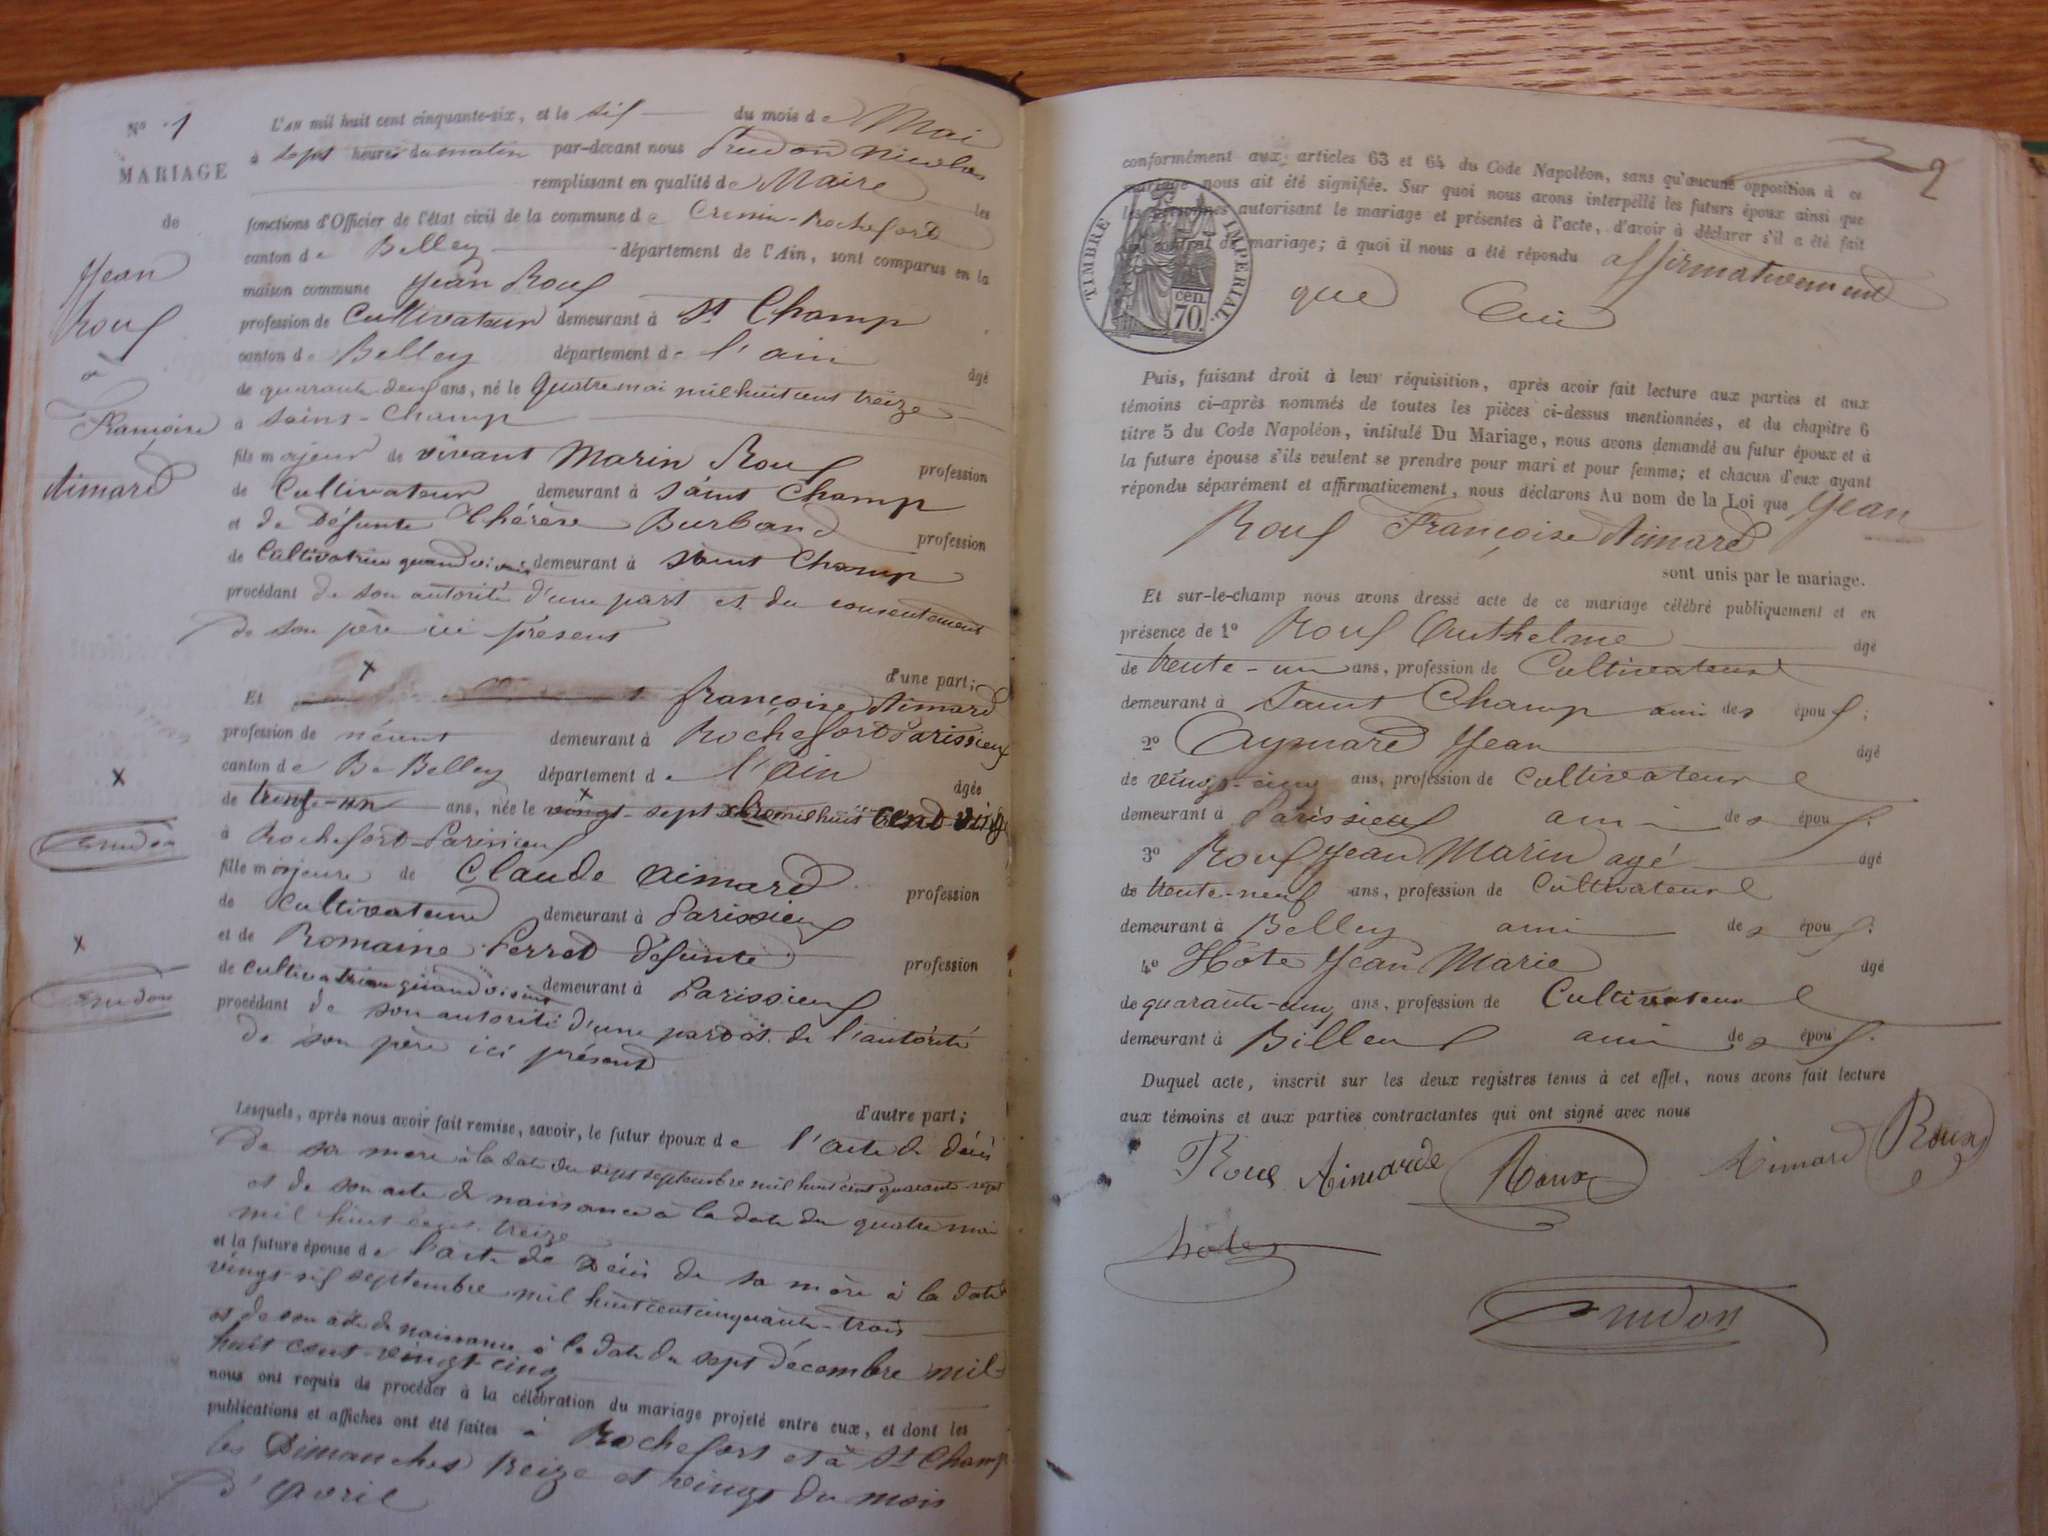 N° 1
MARIAGE
de
Jean
Roux
à
Françoise
Aimard
L'AN mil huit cent cinquante-six, et le six du mois de Mai
à sept heures du matin par-devant nous Prudon Nicolas
remplissant en qualité de Maire les
fonctions d'Officier de l'état civil de la commune de Cressin-Rochefort
canton de Belley département de l'Ain, sont comparus en la
maison commune Jean Roux
profession de Cultivateur demeurant à St Champ
canton de Belley département de l'ain âgé
de quarante deux ans, né le quatre mai mil huit cent treize
à Saint-Champ
fils majeur de vivant Marin Roux profession
de Cultivateur demeurant à Saint Champ
et de Défunte Thérèse Burband profession
de Cultivatrice quand vivait demeurant à Saint Champ
procédant de son autorité d'une part et du consentement
de son père ici présent
x
d'une part;
Et françoise Aimard
profession de néant demeurant à Rochefort Parissieux
canton de De Belley département de l'Ain
x x âgée
de trente-un ans, née le vingt-sept xbre mil huit Cent ving
à Rochefort-Parissieux
Prudon
fille majeure de Claude Aimard profession
de Cultivateur demeurant à Parissieux
x
et de Romaine Perret défunte profession
de cultivatrice quand vivait demeurant à Parissieux
Prudon
procédant de son autorité d'une part et de l'autorité
de son père ici présent
d'autre part;
Lesquels, après nous avoir fait remise, savoir, le futur époux de l'acte de décès
de sa mère à la date du sept septembre mil huit cent quarante-sept
et de son acte de naissance à la date du quatre mai
mil huit cent treize
et la future épouse de l'acte de Décès de sa mère à la date
vingt-six septembre mil huit cent cinquante-trois
et de son acte de naissance à la date du sept décembre mil
huit cent-vingt-cinq
nous ont requis de procéder à la célébration du mariage projeté entre eux, et dont les
publications et affiches ont été faites à Rochefort et à St Champ
les Dimanches treize et vingt du mois
d'Avril
2
conformément aux articles 63 et 64 du Code Napoléon, sans qu'aucune opposition à ce
mariage nous ait été signifiée. Sur quoi nous avons interpellé les futurs époux ainsi que
les personnes autorisant le mariage et présentes à l'acte, d'avoir à déclarer s'il a été fait
un contrat de mariage; à quoi il nous a été répondu affirmativement
que Oui
TIMBRE IMPERIAL.
cen.
70.
Puis, faisant droit à leur réquisition, après avoir fait lecture aux parties et aux
témoins ci-après nommés de toutes les pièces ci-dessus mentionnées, et du chapitre 6
titre 5 du Code Napoléon, intitulé Du Mariage, nous avons demandé au futur époux et à
la future épouse s'ils veulent se prendre pour mari et pour femme; et chacun d'eux ayant
répondu séparément et affirmativement, nous déclarons Au nom de la Loi que Jean
Roux Françoise Aimard
sont unis par le mariage.
Et sur-le-champ nous avons dressé acte de ce mariage célébré publiquement et en
présence de 1° Roux Anthelme âgé
de trente-un ans, profession de Cultivateur
demeurant à Saint Champ ami des époux;
2° Aymard Jean âgé
de vingt-cinq ans, profession de Cultivateur
demeurant à Parissieux ami des époux;
3° Roux Jean Marin agé âgé
de trente-neuf ans, profession de Cultivateur
demeurant à Belley ami des époux;
4° Hôte Jean Marie âgé
de quarante-cinq ans, profession de Cultivateur
demeurant à Billeux ami des époux.
Duquel acte, inscrit sur les deux registres tenus à cet effet, nous avons fait lecture
aux témoins et aux parties contractantes qui ont signé avec nous
Roux Aimarde Roux Aimard Roux
hote
Prudon